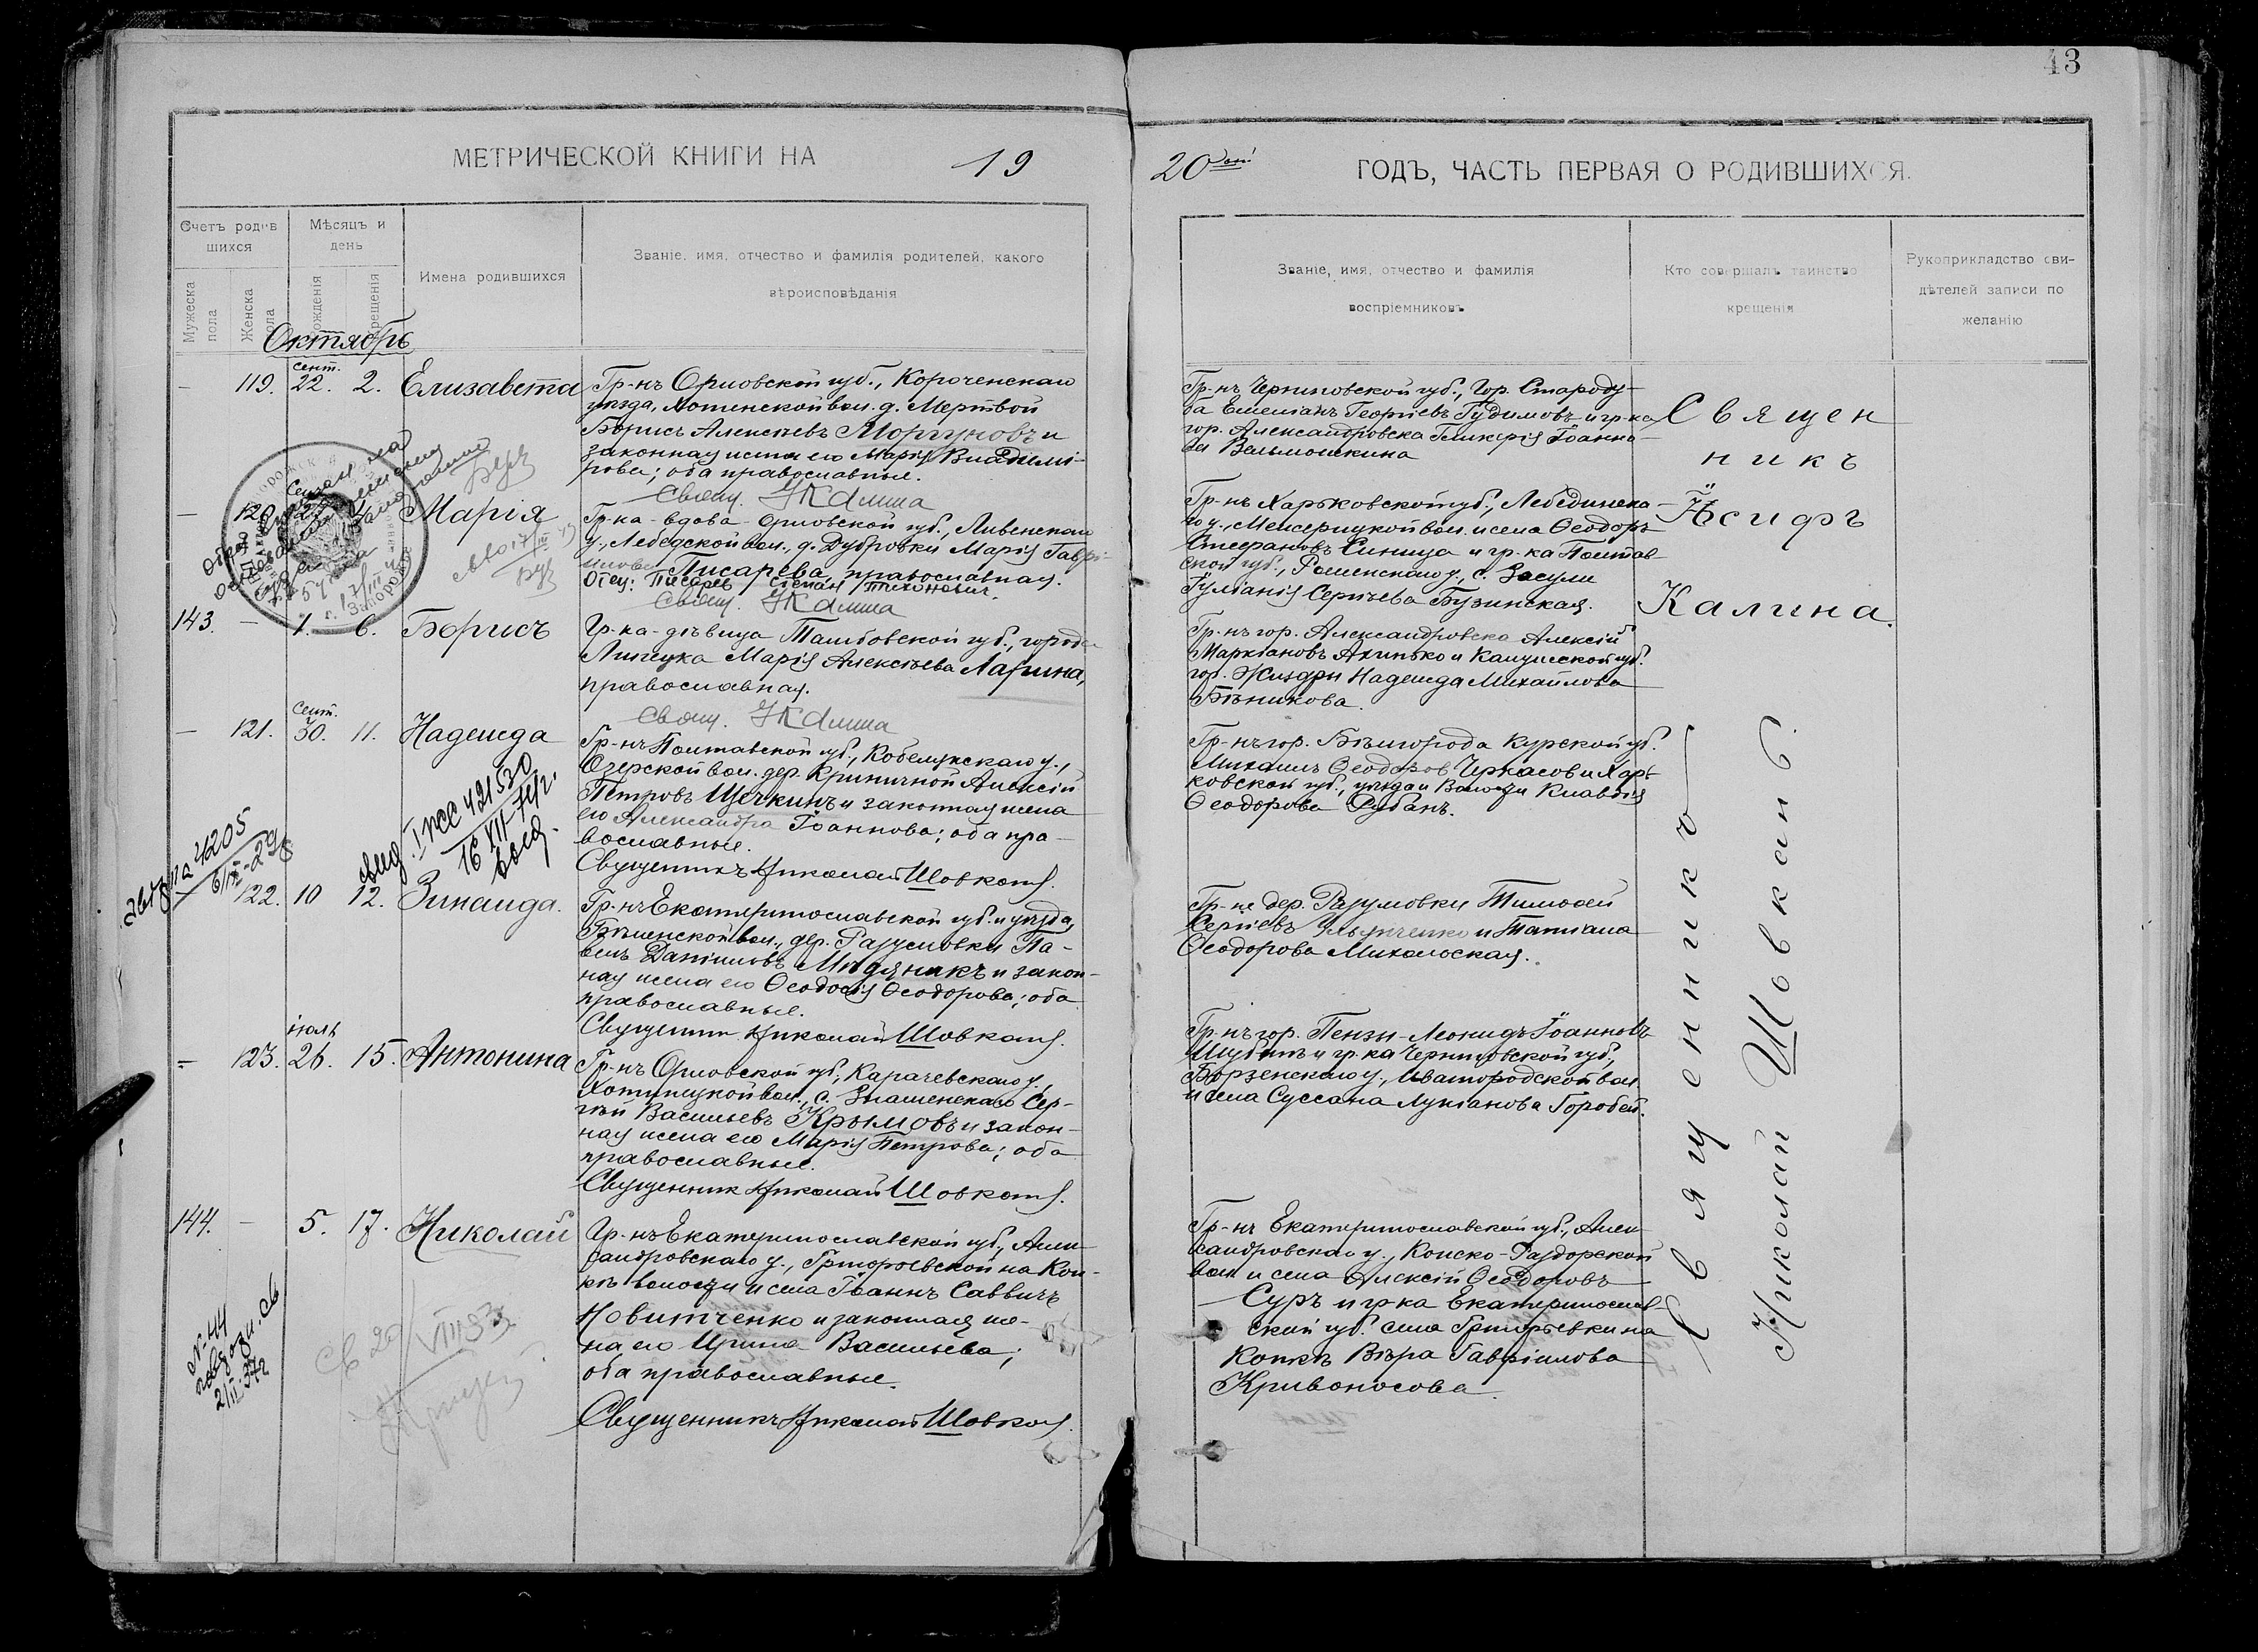 43
МЕТРИЧЕСКОЙ КНИГИ НА 19
20ый ГОДЪ, ЧАСТЬ ПЕРВАЯ О РОДИВШИХСЯ.
Счетъ родив
шихся
Мужеска
пола
Женска
пола
Мѣсяцъ и
день
рожденія
крещенія
Имена родившихся
Званіе, имя, отчество и фамилія родителей, какого
вѣроисповѣданія
Званіе, имя, отчество и фамилія
воспріемниковъ
Кто совершалъ таинство
крещенія
Рукоприкладство сви-
дѣтелей записи по
желанію
Октябрь
— 119. Сент. 22. 2. Елизавета
Гр-нъ Орловской губ., Короченскаго
уѣзда, Хотенской вол. д. Мертвой
Борисъ Алексѣевъ Моргуновъ и
законная жена его Марія Владимі-
рова; оба православные.
Свящ. Калина
Гр-нъ Черниговской губ., Гор. Староду-
ба Емеліанъ Георгіевъ Гудимовъ и гр-ка
гор. Александровска Гликерія Іоанно-
ва Вельмошкина
— 120. Марія
Гр-ка-вдова Орловской губ., Ливенскаго
у., Лебедской вол., д. Дубровки Марія Гаврі-
илова Писарева, православная.
Отец: Писарев Степан Тихонович.
Свящ. Калина
Гр-нъ Харьковской губ., Лебединска-
го у., Межерицкой вол. и села Ѳеодоръ
Стефановъ Синица и гр-ка Полтав-
ской губ., Роменскаго у., с. Засули
Іуліанія Сергіева Бузинская.
143. — 1. 6. Борисъ
Гр-ка-дѣвица Тамбовской губ., города
Липецка Марія Алексѣева Ларина,
православная.
Свящ. Калина
Гр-нъ гор. Александровска Алексій
Маркіановъ Ахинько и Калужской губ.
гор. Жиздры Надежда Михайлова
Бѣникова.
— 121. Сент. 30. 11. Надежда
Гр-нъ Полтавской губ., Кобелякскаго у.,
Озерской вол. дер. Криничной Алексій
Петровъ Щечкинъ и законная жена
его Александра Іоаннова; оба пра-
вославные.
Священникъ Николай Шовкопл.
Гр-нъ гор. Бѣлгорода Курской губ.
Михаилъ Ѳеодоров Черкасов и Харь-
ковской губ., уѣзда и Волости Клавдія
Ѳеодорова Рубанъ.
122. 10 12. Зинаида.
Гр-нъ Екатеринославской губ. и уѣзда,
Бѣленской вол., дер. Разумовки Па-
велъ Даніиловъ Мидяникъ и закон-
ная жена его Ѳеодосія Ѳеодорова; оба
православные.
Священник Николай Шовкопл.
Гр-не дер. Разумовки Тимоѳей
Сергіевъ Ульянченко и Татіана
Ѳеодорова Михальская.
— 123. іюль 26. 15. Антонина
Гр-нъ Орловской губ., Карачевскаго у.,
Хотинецкой вол., с. Знаменскаго Сер-
гѣй Васильевъ Крымовъ и закон-
ная жена его Марія Петрова; оба
православные.
Священник Николай Шовкопл.
Гр-нъ гор. Пензы Леонидъ Іоанновъ
Шубинъ и гр-ка Черниговской губ.,
Борзенскаго у., Ивангородской вол.
и села Суссана Лукіанова Горобей.
144. — 5. 17. Николай
Гр-нъ Екатеринославской губ., Алек-
сандровскаго у., Григорьевской на Кон-
кѣ волости и села Іоаннъ Саввичъ
Новитченко и законная же-
на его Ирина Васильева;
оба православные.
Священникъ Николай Шовкопл.
Гр-нъ Екатеринославской губ., Алек-
сандровскаго у., Конско-Раздорской
вол. и села Алексій Ѳеодоровъ
Суръ и гр-ка Екатеринослав-
ской губ. села Григорьевки на
Конкѣ Вѣра Гавріилова
Кривоносова.
Священ
никъ
Іосифъ
Калина.
Священникъ
Николай Шовкап